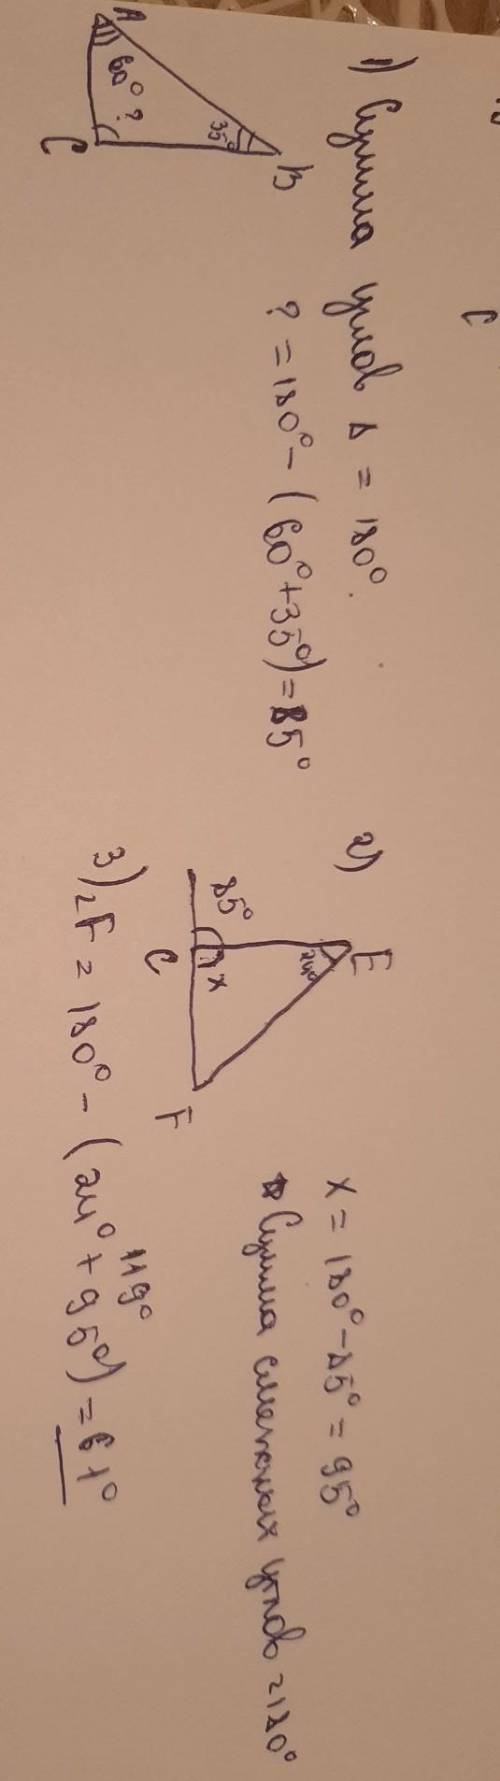 C
1) Сумма углов Δ = 180°.
? = 180° - (60° + 35°) = 85°
A
60° ?
35°
B
C
2)
E
24°
85°
x
C
F
x = 180° - 85° = 95°
Сумма смежных углов = 180°
119°
3) ∠F = 180° - (24° + 95°) = 61°